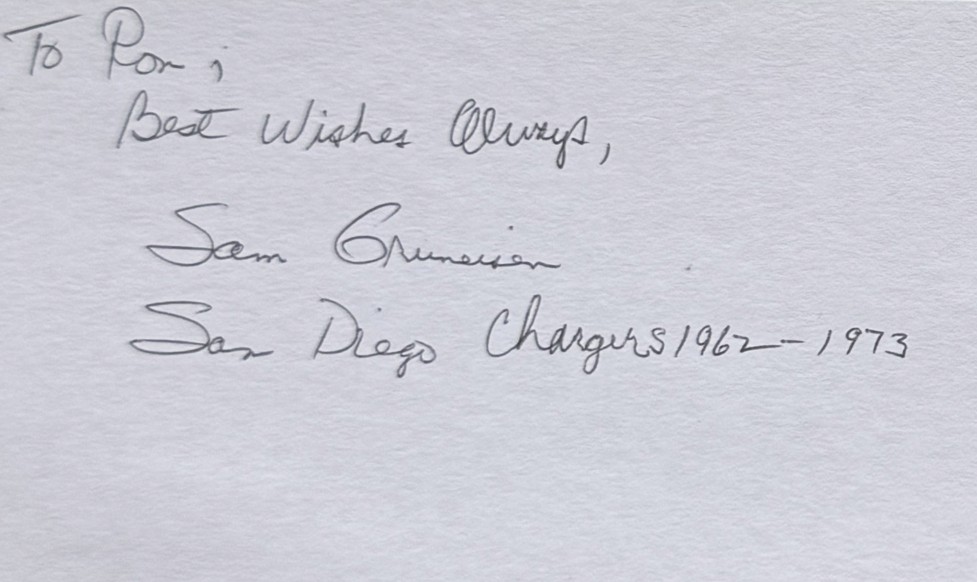 To Ron;
Best Wishes Always,
Sam Gruneisen
San Diego Chargers 1962-1973